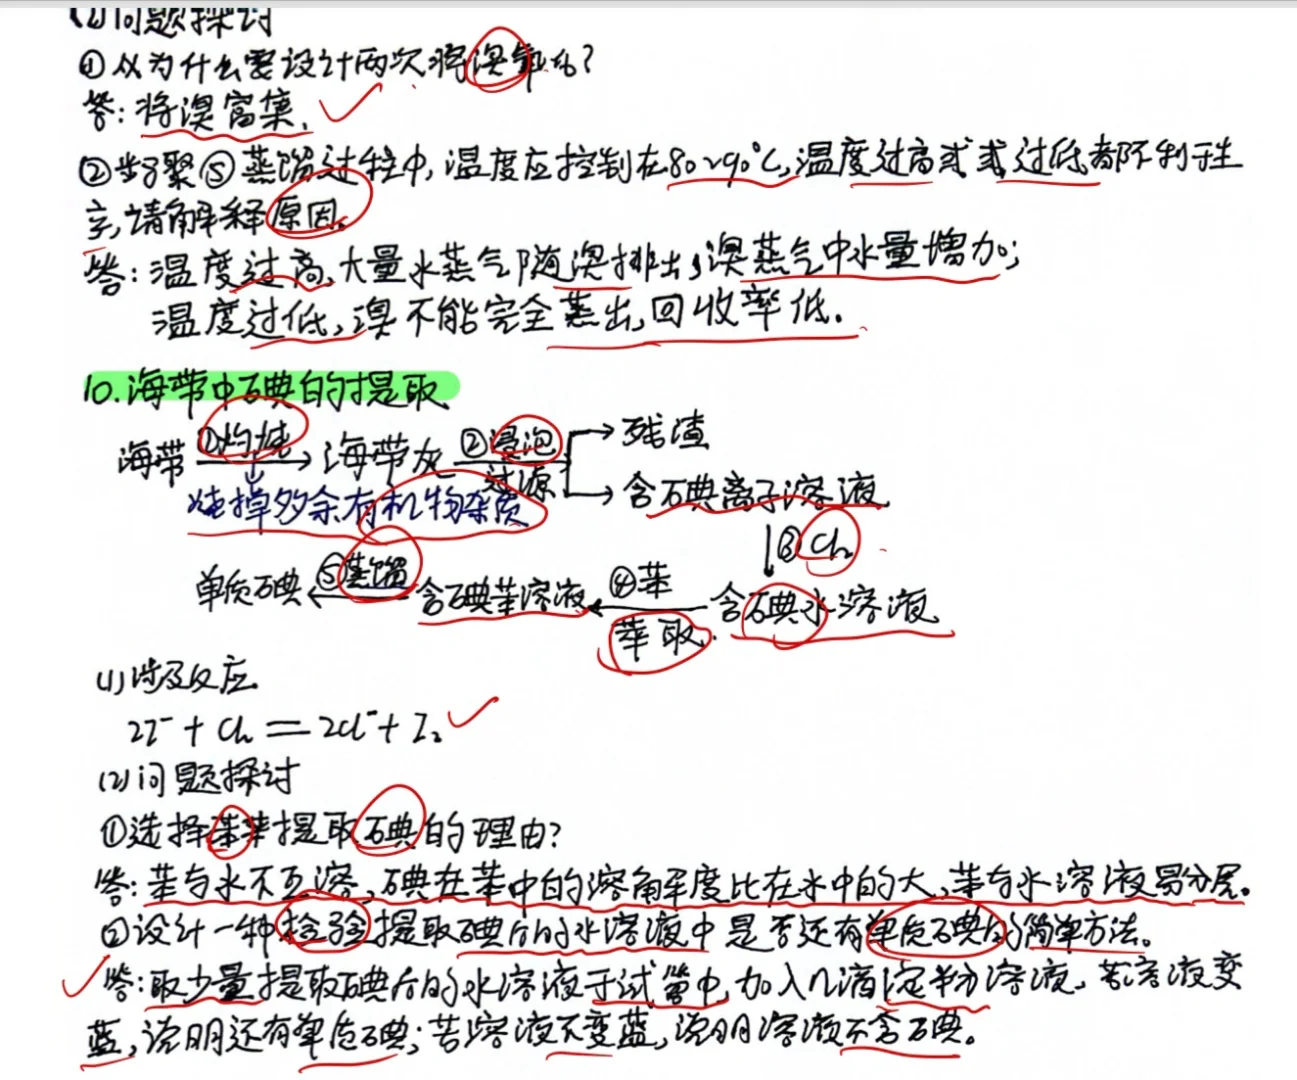 (2)问题探讨
①从为什么要设计两次将溴氧化?
答:将溴富集.
②步骤⑤蒸馏过程中,温度应控制在80~90℃,温度过高或或过低都不利于生
产,请解释原因。
答:温度过高,大量水蒸气随溴排出,溴蒸气中水量增加;
温度过低,溴不能完全蒸出,回收率低.
10.海带中碘的提取
海带 ①灼烧 海带灰 ②浸泡 过滤 残渣
烧掉多余有机物杂质 含碘离子溶液
③Cl₂
单质碘 ⑤蒸馏 含碘苯溶液 ④苯 萃取 含碘水溶液
(1)涉及反应
2I⁻+Cl₂=2Cl⁻+I₂
(2)问题探讨
①选择苯提取碘的理由?
答:苯与水不互溶,碘在苯中的溶解度比在水中的大,苯与水溶液易分层。
②设计一种检验提取碘后的水溶液中是否还有单质碘的简单方法。
答:取少量提取碘后的水溶液于试管中,加入几滴淀粉溶液,若溶液变
蓝,说明还有单质碘;若溶液不变蓝,说明溶液不含碘。